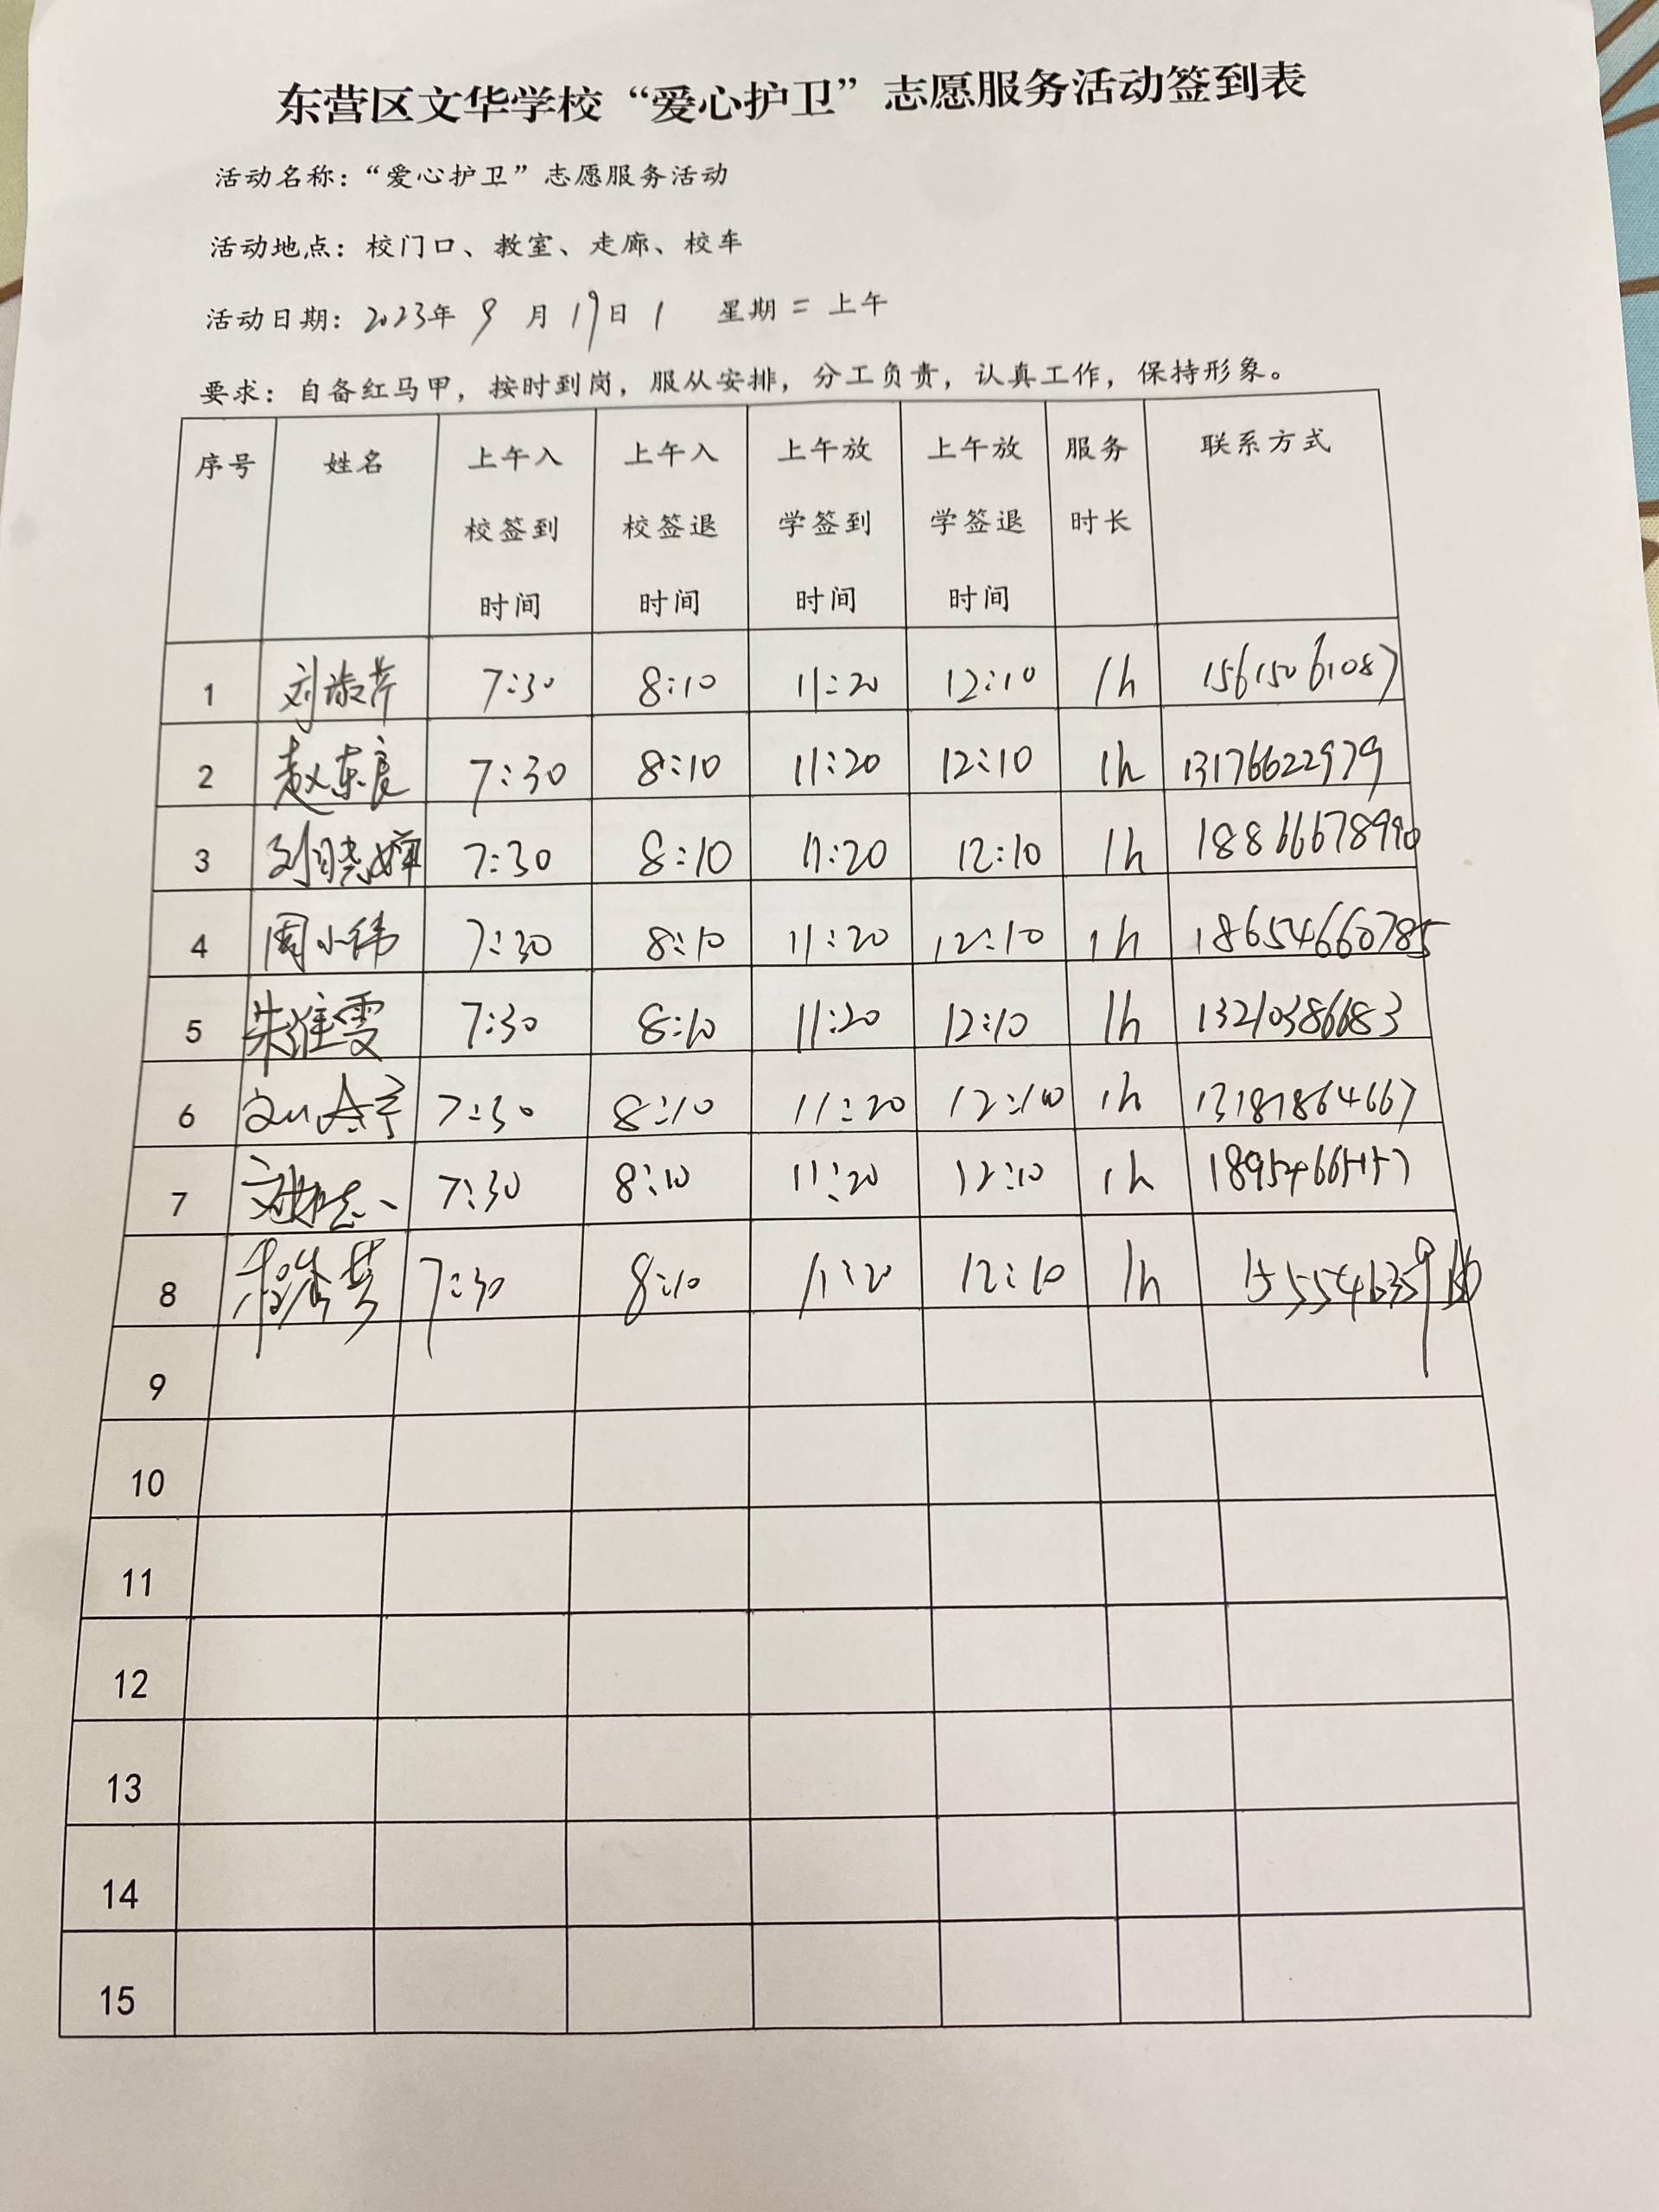 东营区文华学校“爱心护卫”志愿服务活动签到表
活动名称：“爱心护卫”志愿服务活动
活动地点：校门口、教室、走廊、校车
活动日期：2023年 9 月 19日 1 星期二 上午
要求：自备红马甲，按时到岗，服从安排，分工负责，认真工作，保持形象。
序号 姓名 上午入校签到时间 上午入校签退时间 上午放学签到时间 上午放学签退时间 服务时长 联系方式
1 刘淑芹 7:30 8:10 11:20 12:10 1h 15615061087
2 赵东良 7:30 8:10 11:20 12:10 1h 13176622979
3 7:30 8:10 11:20 12:10 1h 18866678990
4 周小伟 7:30 8:10 11:20 12:10 1h 18654660785
5 朱维雯 7:30 8:10 11:20 12:10 1h 13210386683
6 7:30 8:10 11:20 12:10 1h 13181864667
7 7:30 8:10 11:20 12:10 1h
8 7:30 8:10 11:20 12:10 1h
9
10
11
12
13
14
15